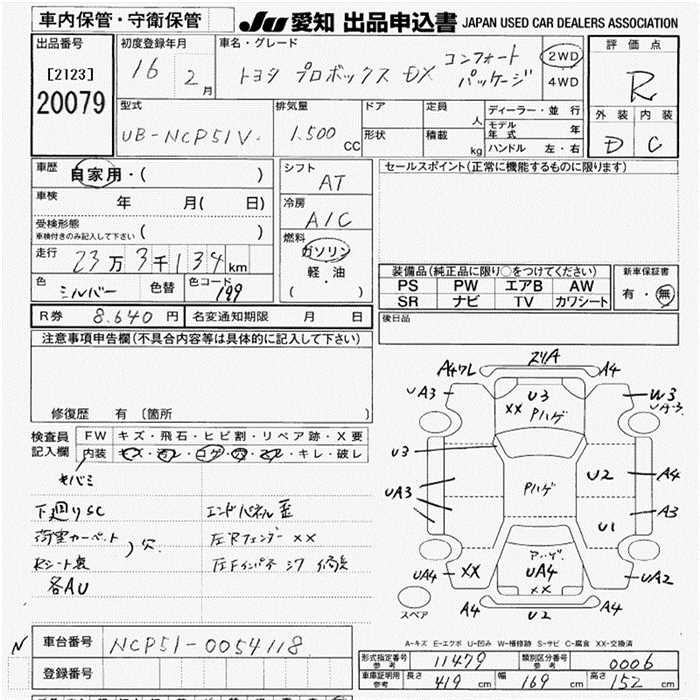 車内保管・守衛保管
JU 愛知 出品申込書 JAPAN USED CAR DEALERS ASSOCIATION
出品番号
[2123]
20079
初度登録年月
16 2月
車名・グレード
トヨタ プロボックス DX コンフォートパッケージ
2WD
4WD
評価点
R
外装 内装
D C
型式
UB-NCP51V
排気量
1.500 CC
ドア
形状
定員 人
積載 kg
ディーラー・並行
モデル年式 年
ハンドル 左・右
車歴 自家用・( )
車検 年 月( 日)
受検形態
車検付きのみ記入して下さい ( )
走行 23万3千134km
色 シルバー 色替 色コード 199
シフト
AT
冷房
A/C
燃料
ガソリン
軽・油
( )
セールスポイント(正常に機能するものに限ります)
装備品(純正品に限り○をつけてください)
PS PW エアB AW
SR ナビ TV カワシート
新車保証書
有・無
R券 8.640円 名変通知期限 月 日
後日品
注意事項申告欄(不具合内容等は具体的に記入して下さい)
修復歴 有 [箇所 ]
検査員記入欄
FW キズ・飛石・ヒビ割・リペア跡・X要
内装 キズ・汚レ・コゲ・穴・スレ・キレ・破レ
下廻りSC エンドパネル歪
荷室カーペット 穴 左Rフェンダー XX
各AU
スリA
A4 A4
UA3 U3 W3
XX Pハゲ
U3
Pハゲ U2 A4
UA3 A3
U1
UA4 XX UA4 UA2
XX
A4 A4
U2
スペア
A-キズ E-エクボ U-凹み W-補修跡 S-サビ C-腐食 XX-交換済
N 車台番号 NCP51-0054118
登録番号
形式指定番号参考 11479 類別区分番号参考 0006
車庫証明用参考 長さ 419cm 幅 169cm 高さ 152cm